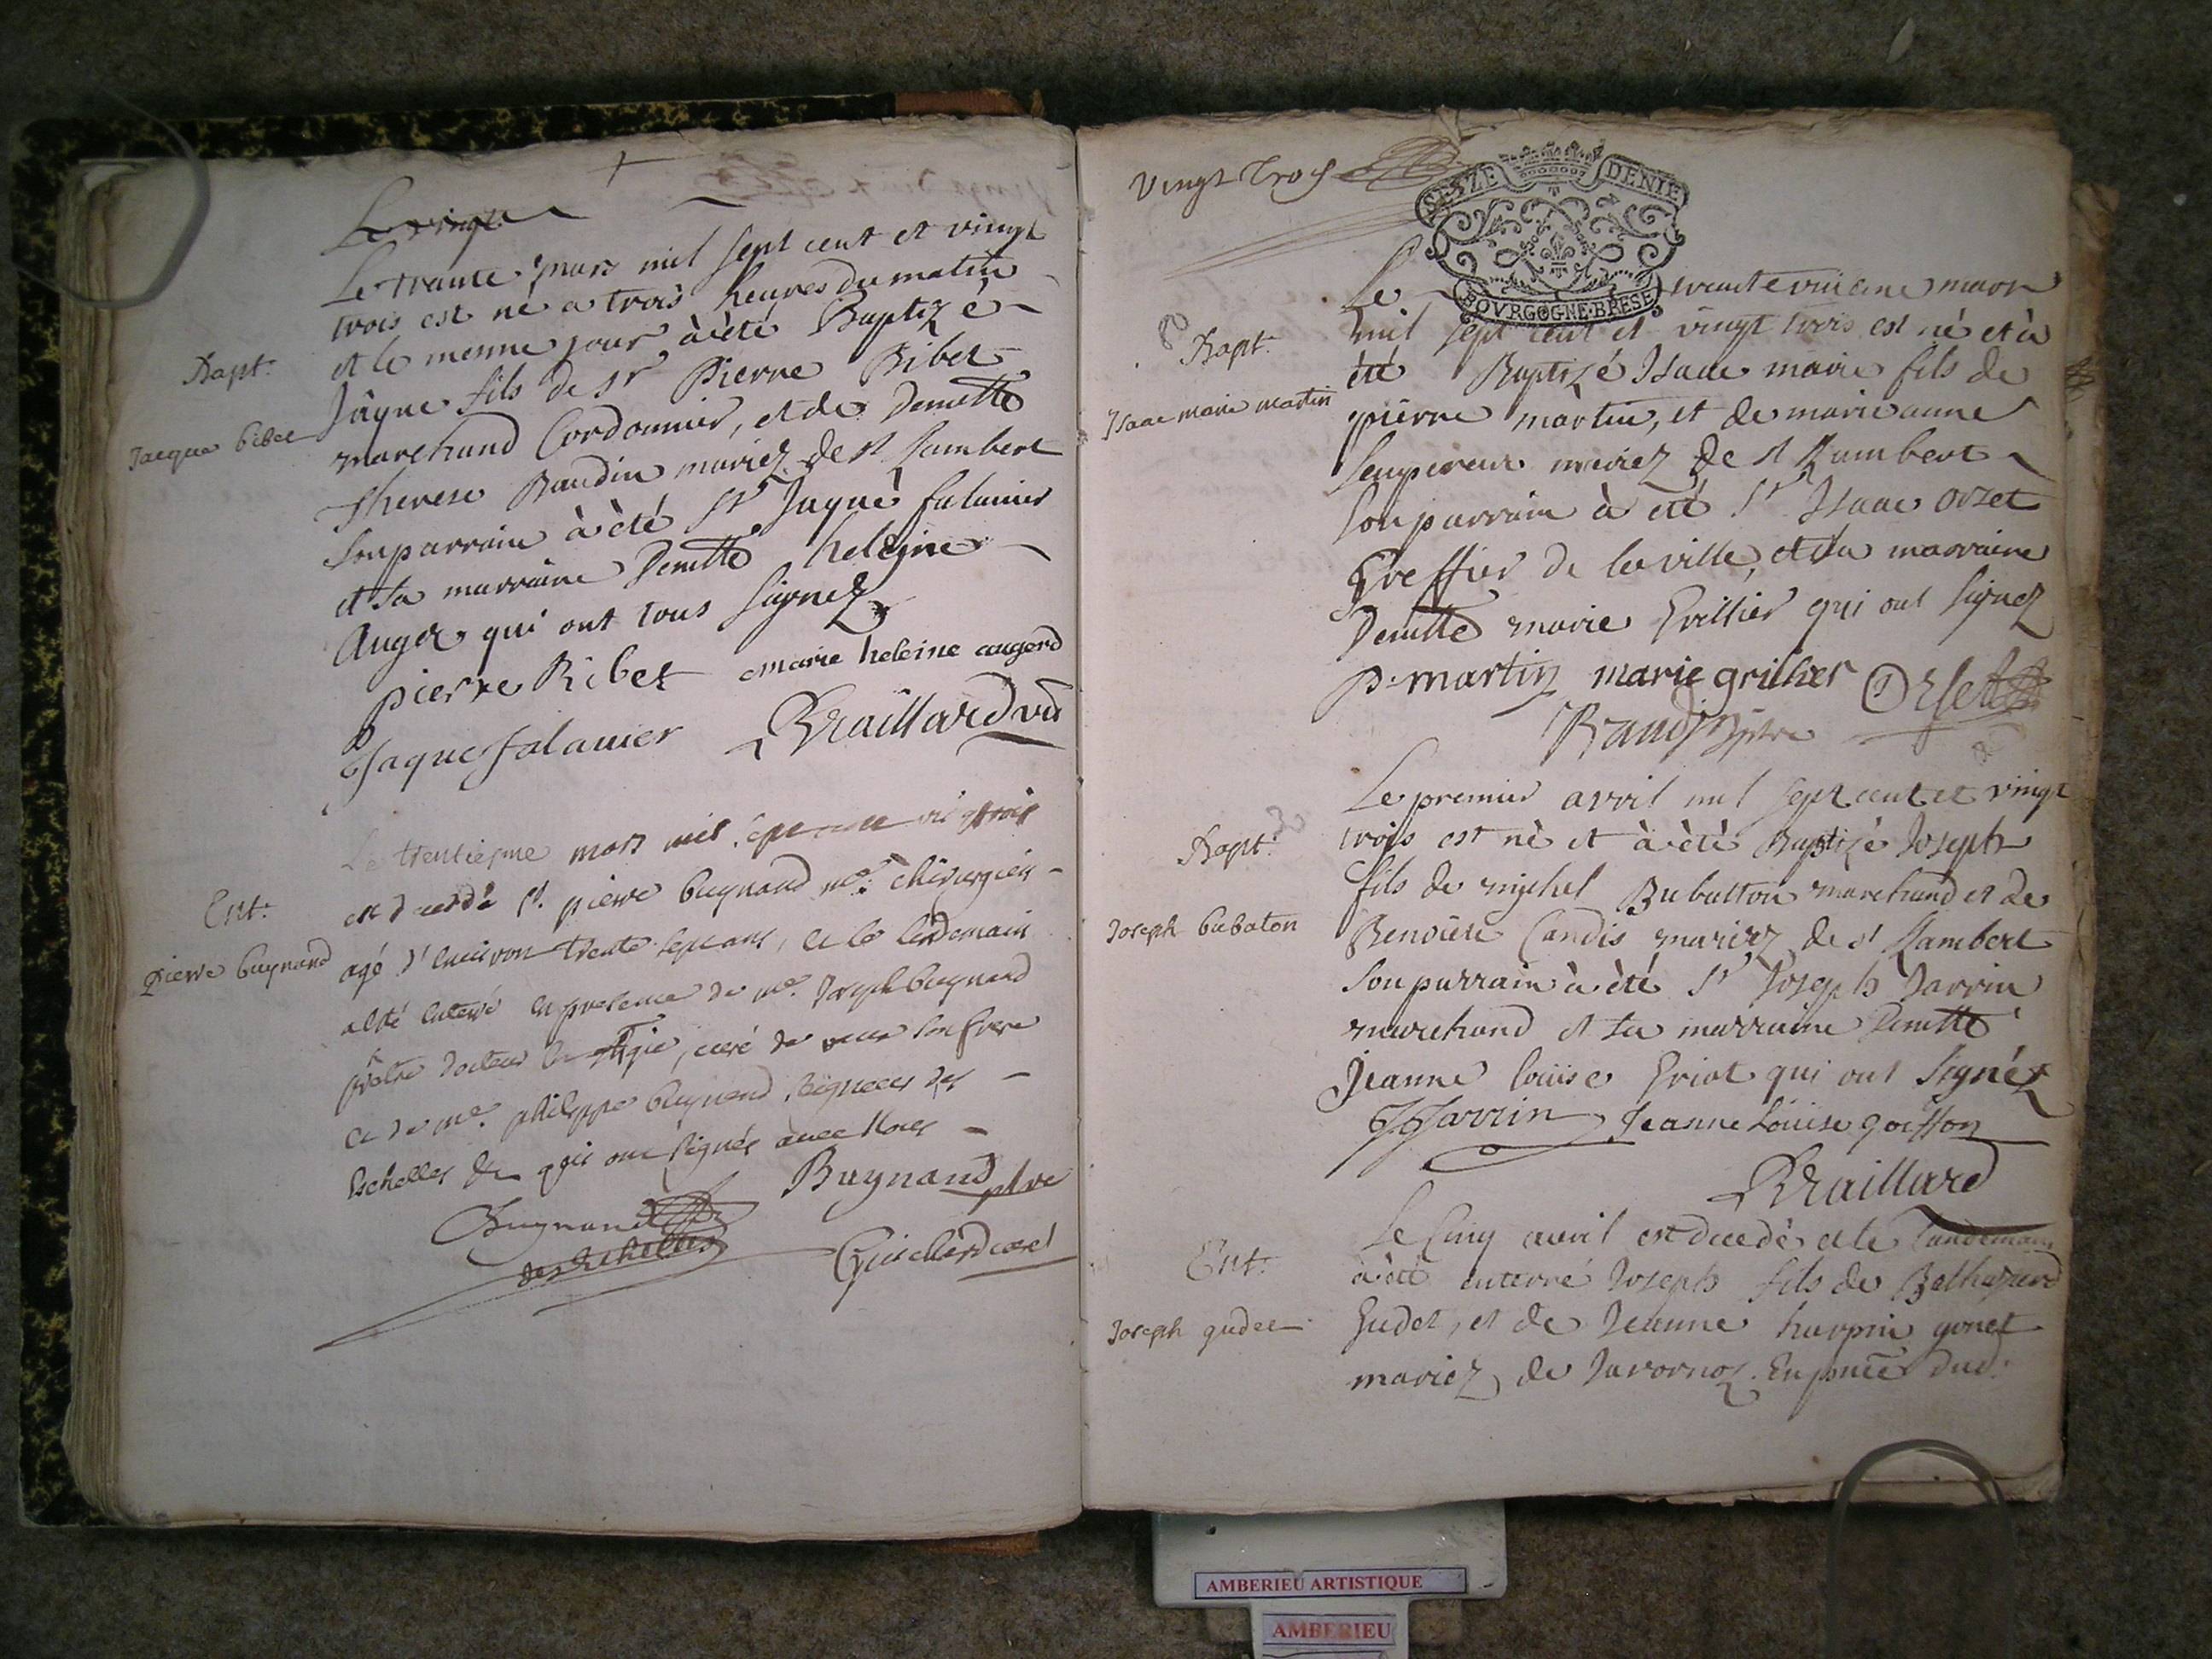 Le vingt
Bapt.
Jacque Ribet
Le trante mars mil sept cent et vingt
trois est né a trois heures du matin
et le mesme jour à été Baptizé
Jâque fils de Sr Pierre Ribet
marchand Cordonnier, et de Demlle
Therese Baudin mariez de St Rambert
Son parrain à été Sr Jaque falavier
et sa marraine Demlle heleine
Auger qui ont tous signez
pierre Ribet marie heleine augerd
Jaque falavier Braillard vic
Ent.
pierre buynand
Le trentiesme mars mil sept cent vingt trois
est decedé Sr. pierre buynand me. chirurgien
agé d'environ trente sept ans, et le lendemain
a esté enterré en presence de me. Joseph buynand
prêtre docteur en , curé de son frere
et de me. philippe buynand, seigneur des
Eschelles qui ont signés avec Nous
Buynand ptre
Buynand
des Echelles
Guichard curé
Vingt Trois
SEIZE DENIE
BOVRGOGNE·BRESE
Bapt.
Isaac marie martin
Le trante mars
mil sept cent et vingt trois est né et à
été Baptizé Isaac marie fils de
pierre martin, et de marie anne
Lempereur mariez de St Rambert
Son parrain à été Sr Isaac Orset
Greffier de la ville, et sa marraine
Demlle marie Grillier qui ont signez
p. martin marie grillier Orset
Baudin ptre
Bapt.
Joseph bubaton
Le premier avril mil sept cent et vingt
trois est né et à été Baptizé Joseph
fils de michel Bubatton marchand et de
Benoîte Candis mariez de St Rambert
Son parrain à été Sr Joseph Jarrin
marchand et sa marraine Demlle
Jeanne louise Griot qui ont signéz
JJarrin Jeanne Loüise goiffon
Braillard
Ent.
Joseph gudet
Le Cinq avril est decedé et le landemain
à été enterré Joseph fils de Balthazard
Gudet, et de Jeanne harpin gonet
mariez de Javornoz. En pnce dud.
AMBERIEU ARTISTIQUE
AMBERIEU